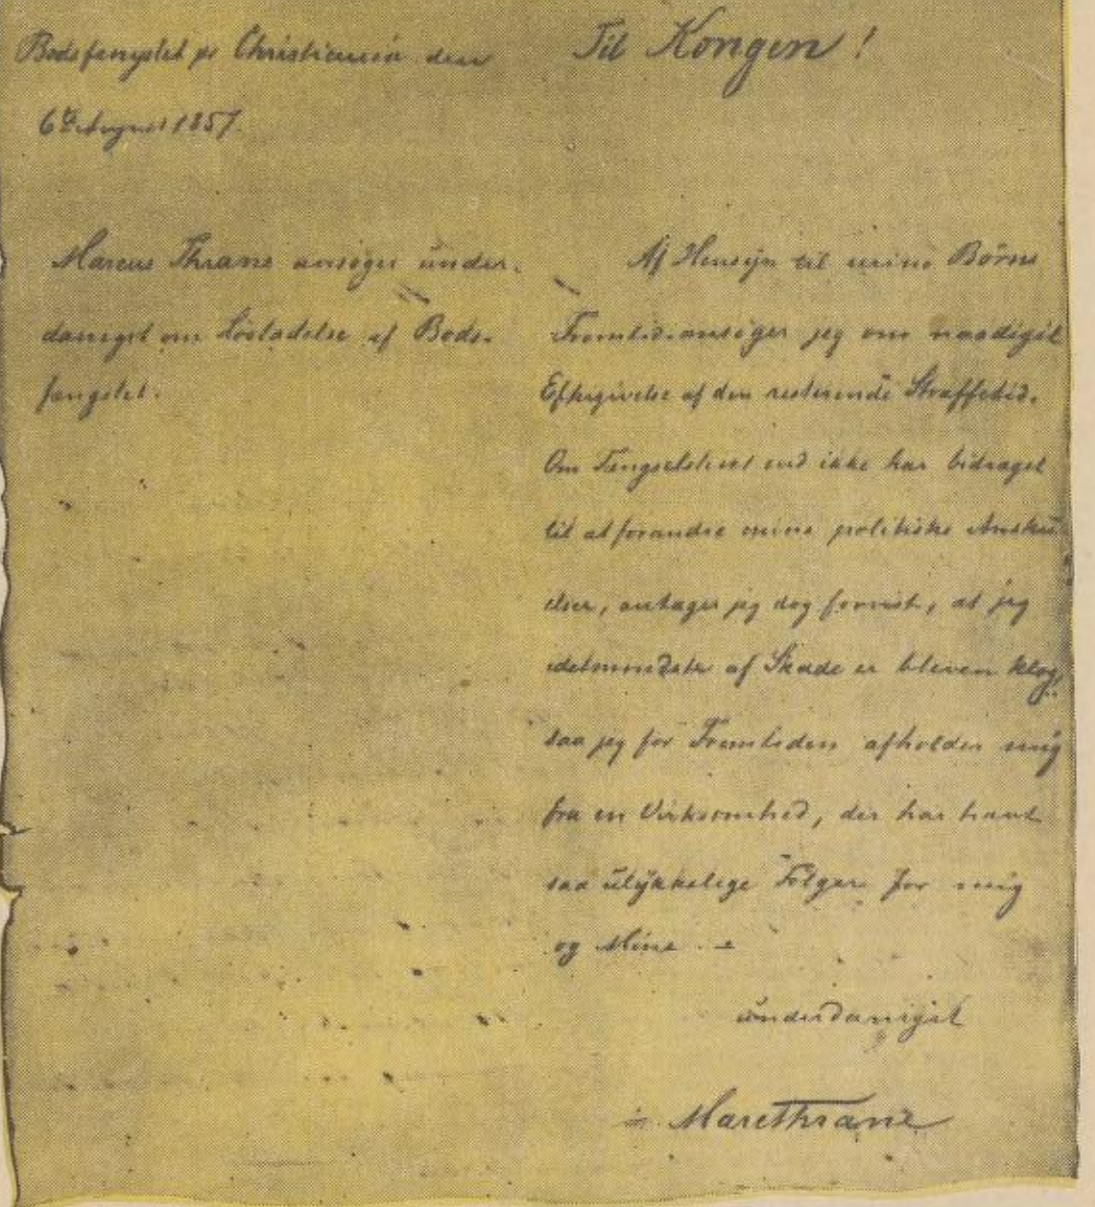 Bodsfængslet pr Christiania den
6te August 1857.
Marcus Thrane ansøger under-
danigst om Løsladelse af Bods-
fængslet.
Til Kongen!
Af Hensyn til mine Börns
Fremtid ansøger jeg om naadigst
Eftergivelse af den resterende Straffetid.
Om Fængselslivet end ikke har bidraget
til at forandre mine politiske Ansku-
elser, antager jeg dog forvist, at jeg
idetmindste af Skade er bleven klog,
saa jeg for Fremtiden afholder mig
fra en Virksomhed, der har havt
saa ulykkelige Følger for mig
og Mine.
underdanigst
MarcThrane